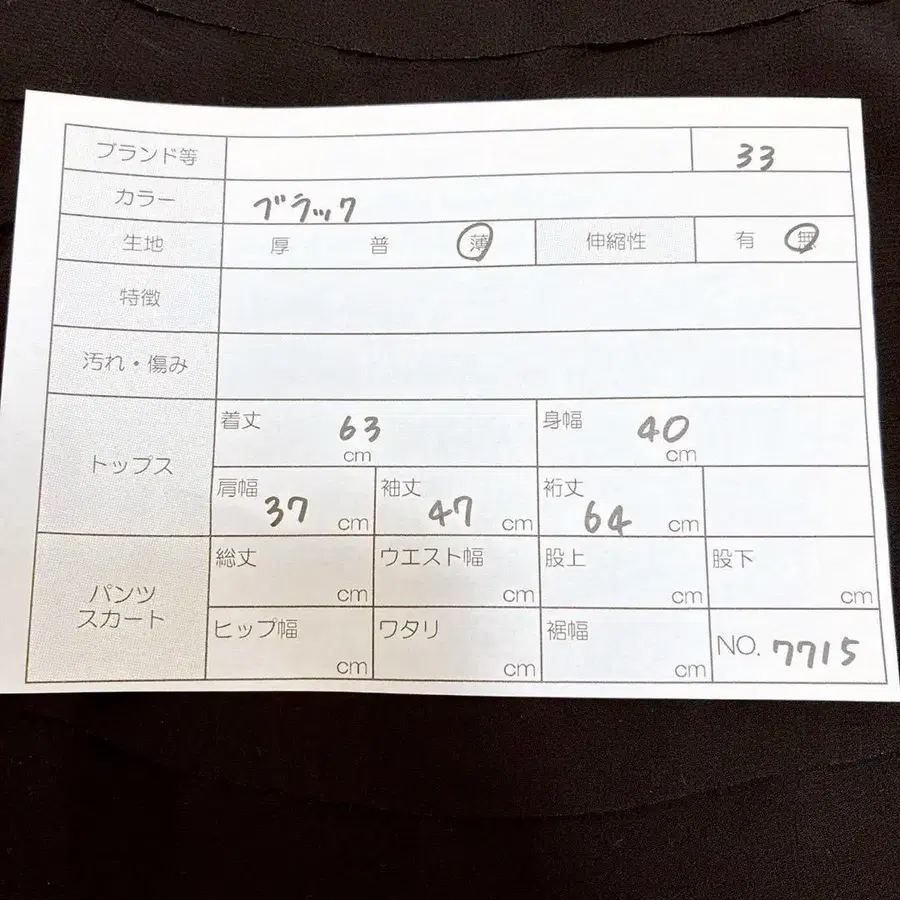 ブランド等 33
カラー ブラック
生地 厚 普 薄 伸縮性 有 無
特徴
汚れ・傷み
トップス
着丈 63 cm 身幅 40 cm
肩幅 37 cm 袖丈 47 cm 裄丈 64 cm
パンツ
スカート
総丈 cm ウエスト幅 cm 股上 cm 股下 cm
ヒップ幅 cm ワタリ cm 裾幅 cm NO. 7715